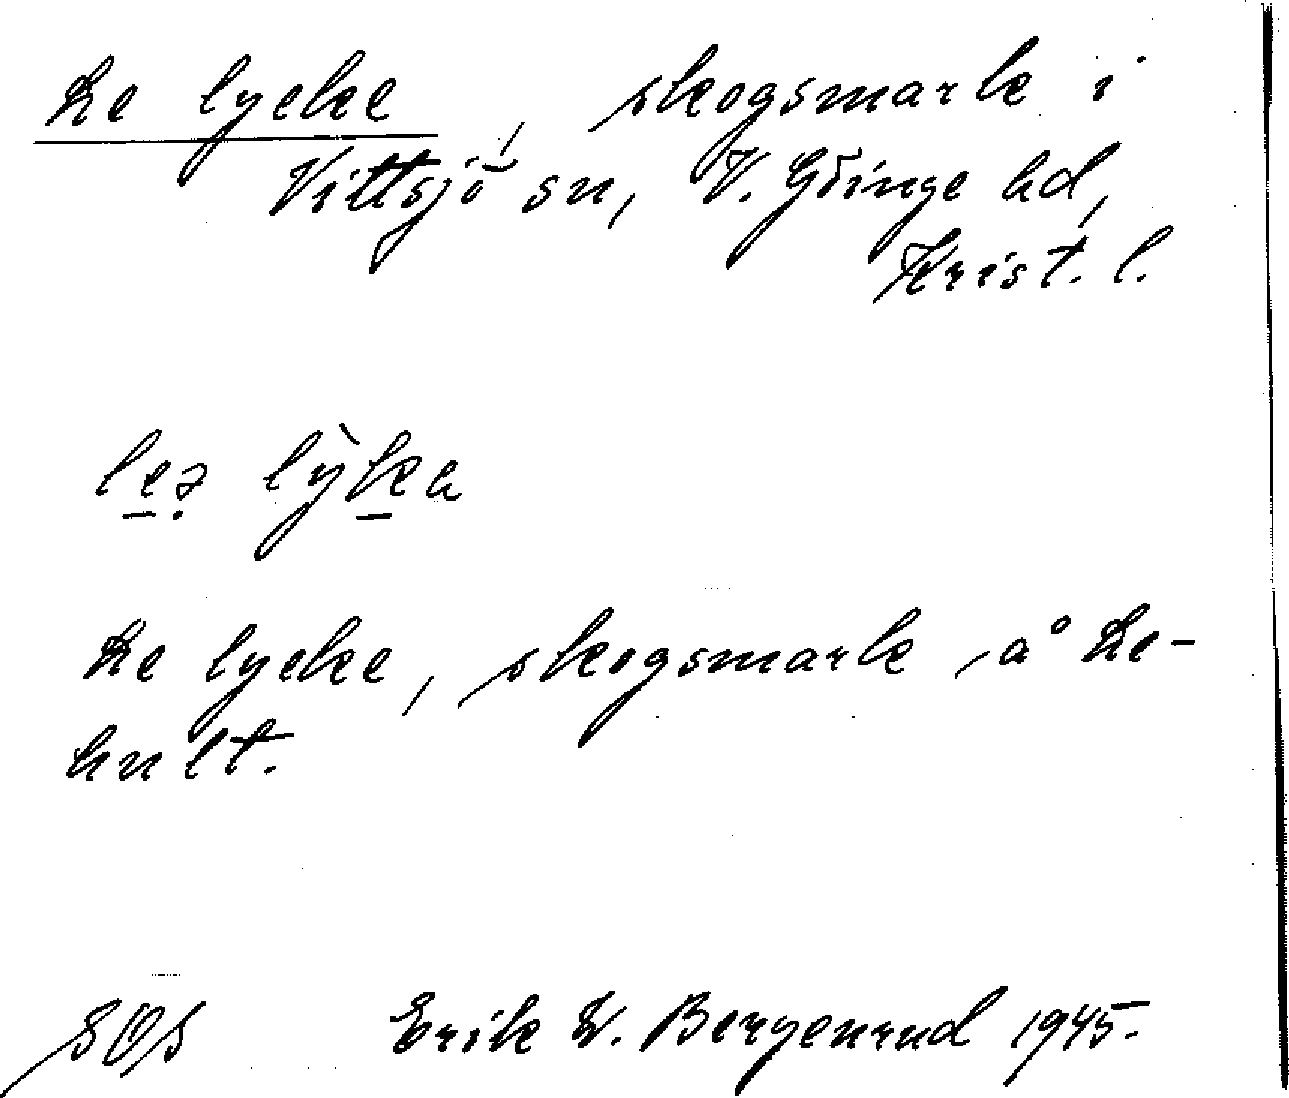 Le lycke, skogsmark i
Vittsjö sn, V. Göinge hd,
Krist. l.
lea lỳka
Le lycke, skogsmark å Le-
hult.
SOS Erik W. Bergenrud 1945.